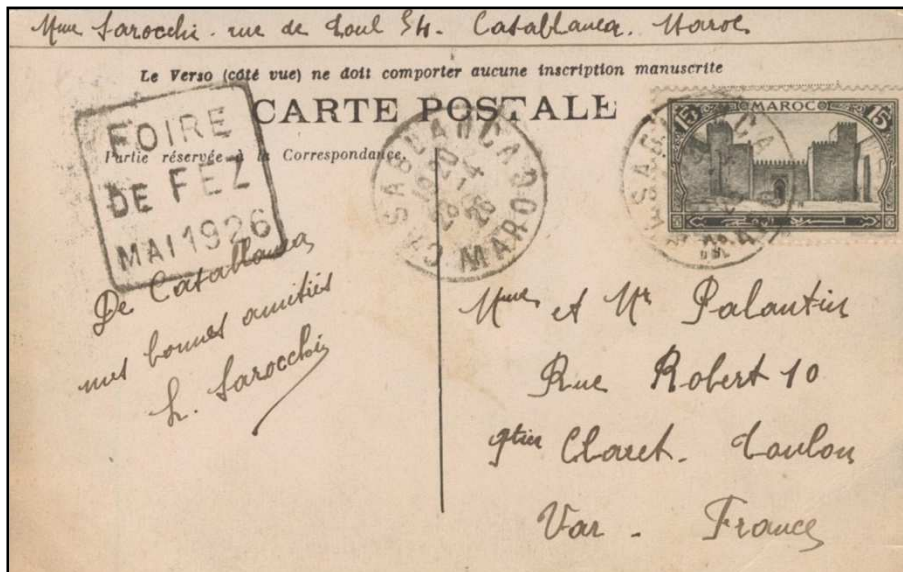 Mme Sarocchi. rue de Toul 54. Casablanca. Maroc
Le Verso (côté vue) ne doit comporter aucune inscription manuscrite
CARTE POSTALE
Partie réservée à la Correspondance.
FOIRE
DE FEZ
MAI 1926
CASABLANCA
MAROC
15 MAROC 15
De Casablanca
mes bonnes amitiés
L. Sarocchi
Mme et Mr Palantin
Rue Robert 10
qtier Claret. Toulon
Var. France